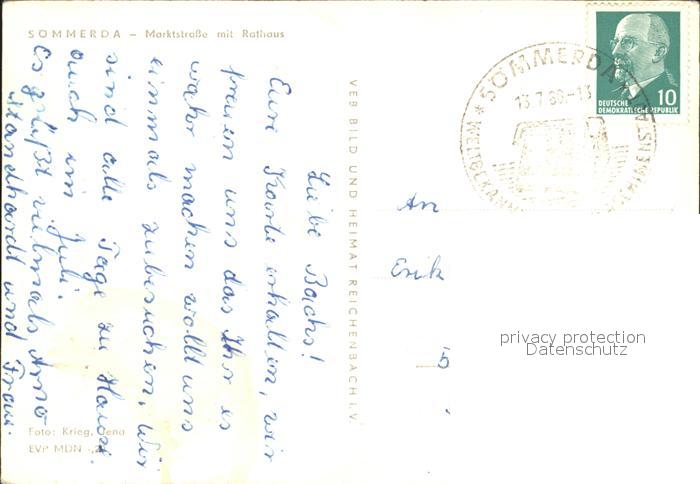 SÖMMERDA – Marktstraße mit Rathaus
Liebe Bachs!
Eure Karte erhalten, wir
freuen uns das Ihr es
wahr machen wollt uns
einmals zubesuchen, Wir
sind alle Tage zu Hause
auch im Juli.
Es grüßt vielmals Arno
Standhardt und Frau.
Foto: Krieg, Jena
EVP MDN
VEB BILD UND HEIMAT REICHENBACH i.V.
SÖMMERDA
13.7.
WELTBEKANN
10
DEUTSCHE
DEMOKRATISCHE REPUBLIK
An
Erik
privacy protection
Datenschutz